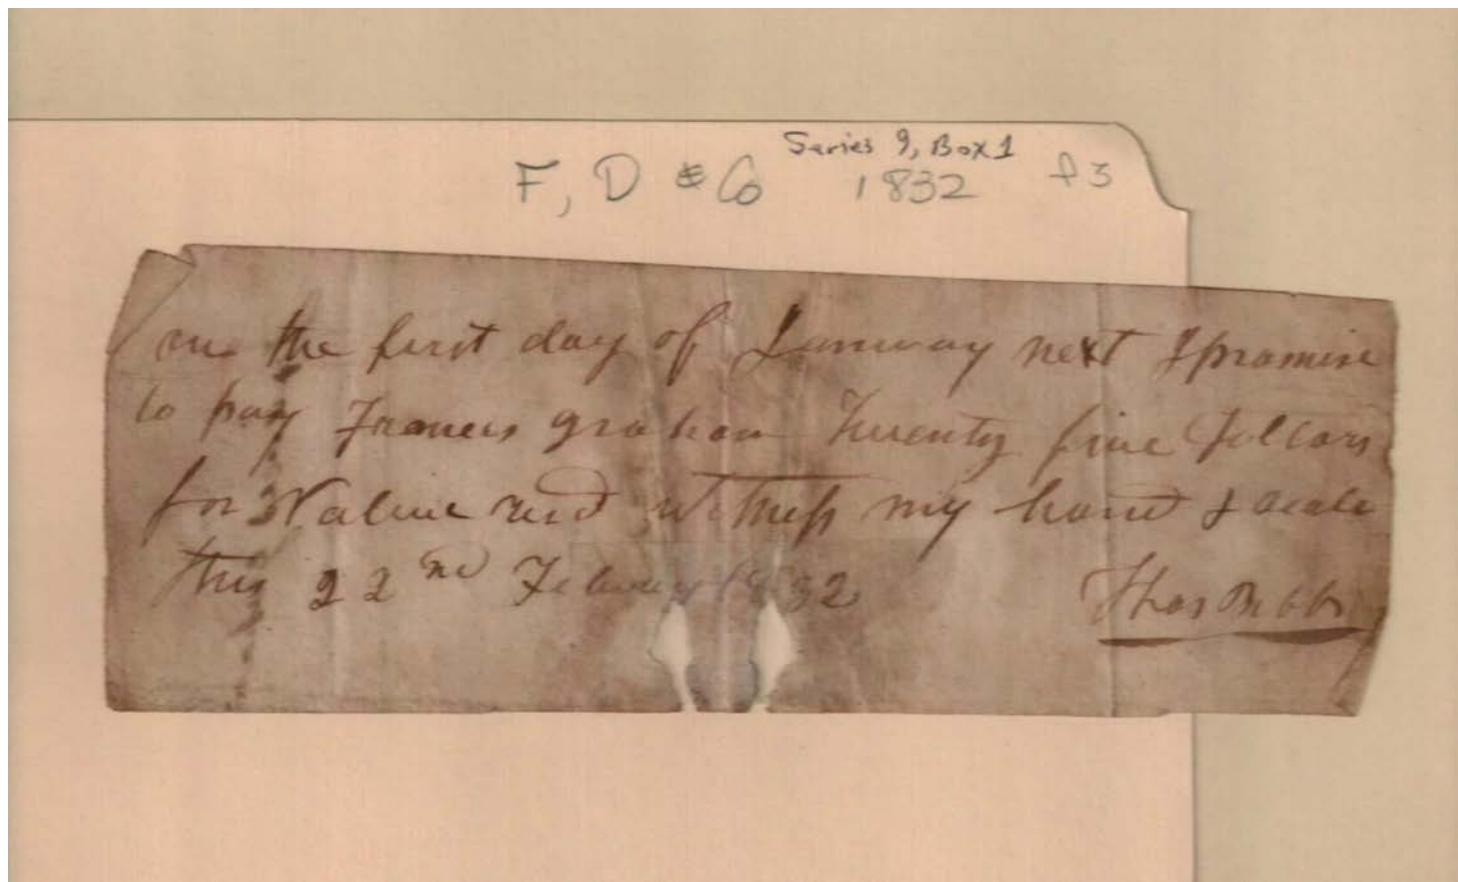 Series 9, Box 1
F, D & Co 1832 f3
on the first day of January next I promise
to pay Frances graham Twenty five Dollars
for Value recd witness my hand & seale
this 22nd February 1832
Thos Bibb